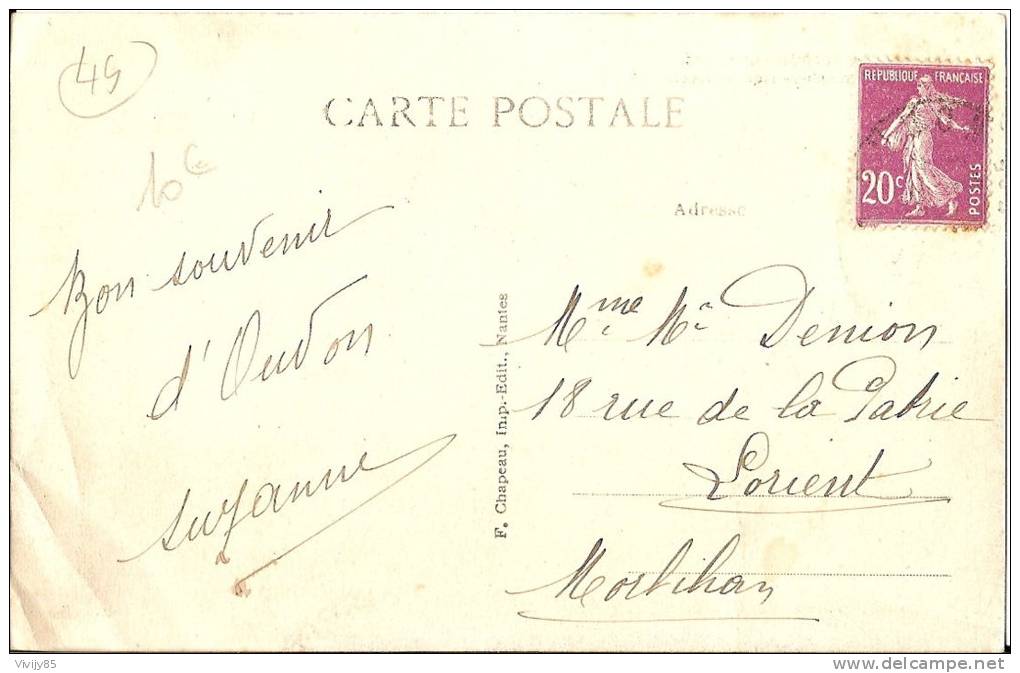 49
CARTE POSTALE
RÉPUBLIQUE FRANÇAISE
20c
POSTES
10 c
Adresse
Bon souvenir
d'Oudon
Suzanne
F. Chapeau, Imp.-Edit., Nantes
Mme Denion
18 rue de la Patrie
Lorient
Morbihan
Vivijy85
www.delcampe.net